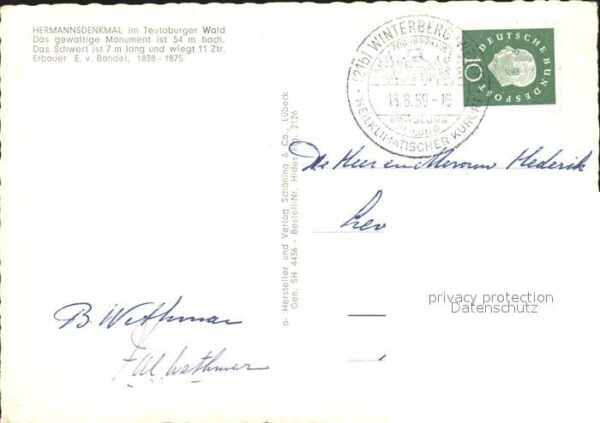 HERMANNSDENKMAL im Teutoburger Wald
Das gewaltige Monument ist 54 m hoch.
Das Schwert ist 7 m lang und wiegt 11 Ztr.
Erbauer E. v. Bandel, 1838 - 1875
(21b) WINTERBERG
HEILKLIMATISCHER KURORT
ERHOLUNG
DEUTSCHE
BUNDESPOST
10
a- Hersteller und Verlag Schöning & Co., Lübeck
Gen. SH 4436 - Bestell-Nr.
De Heer en Mevrouw Hederik
privacy protection
Datenschutz
B. Wethmar